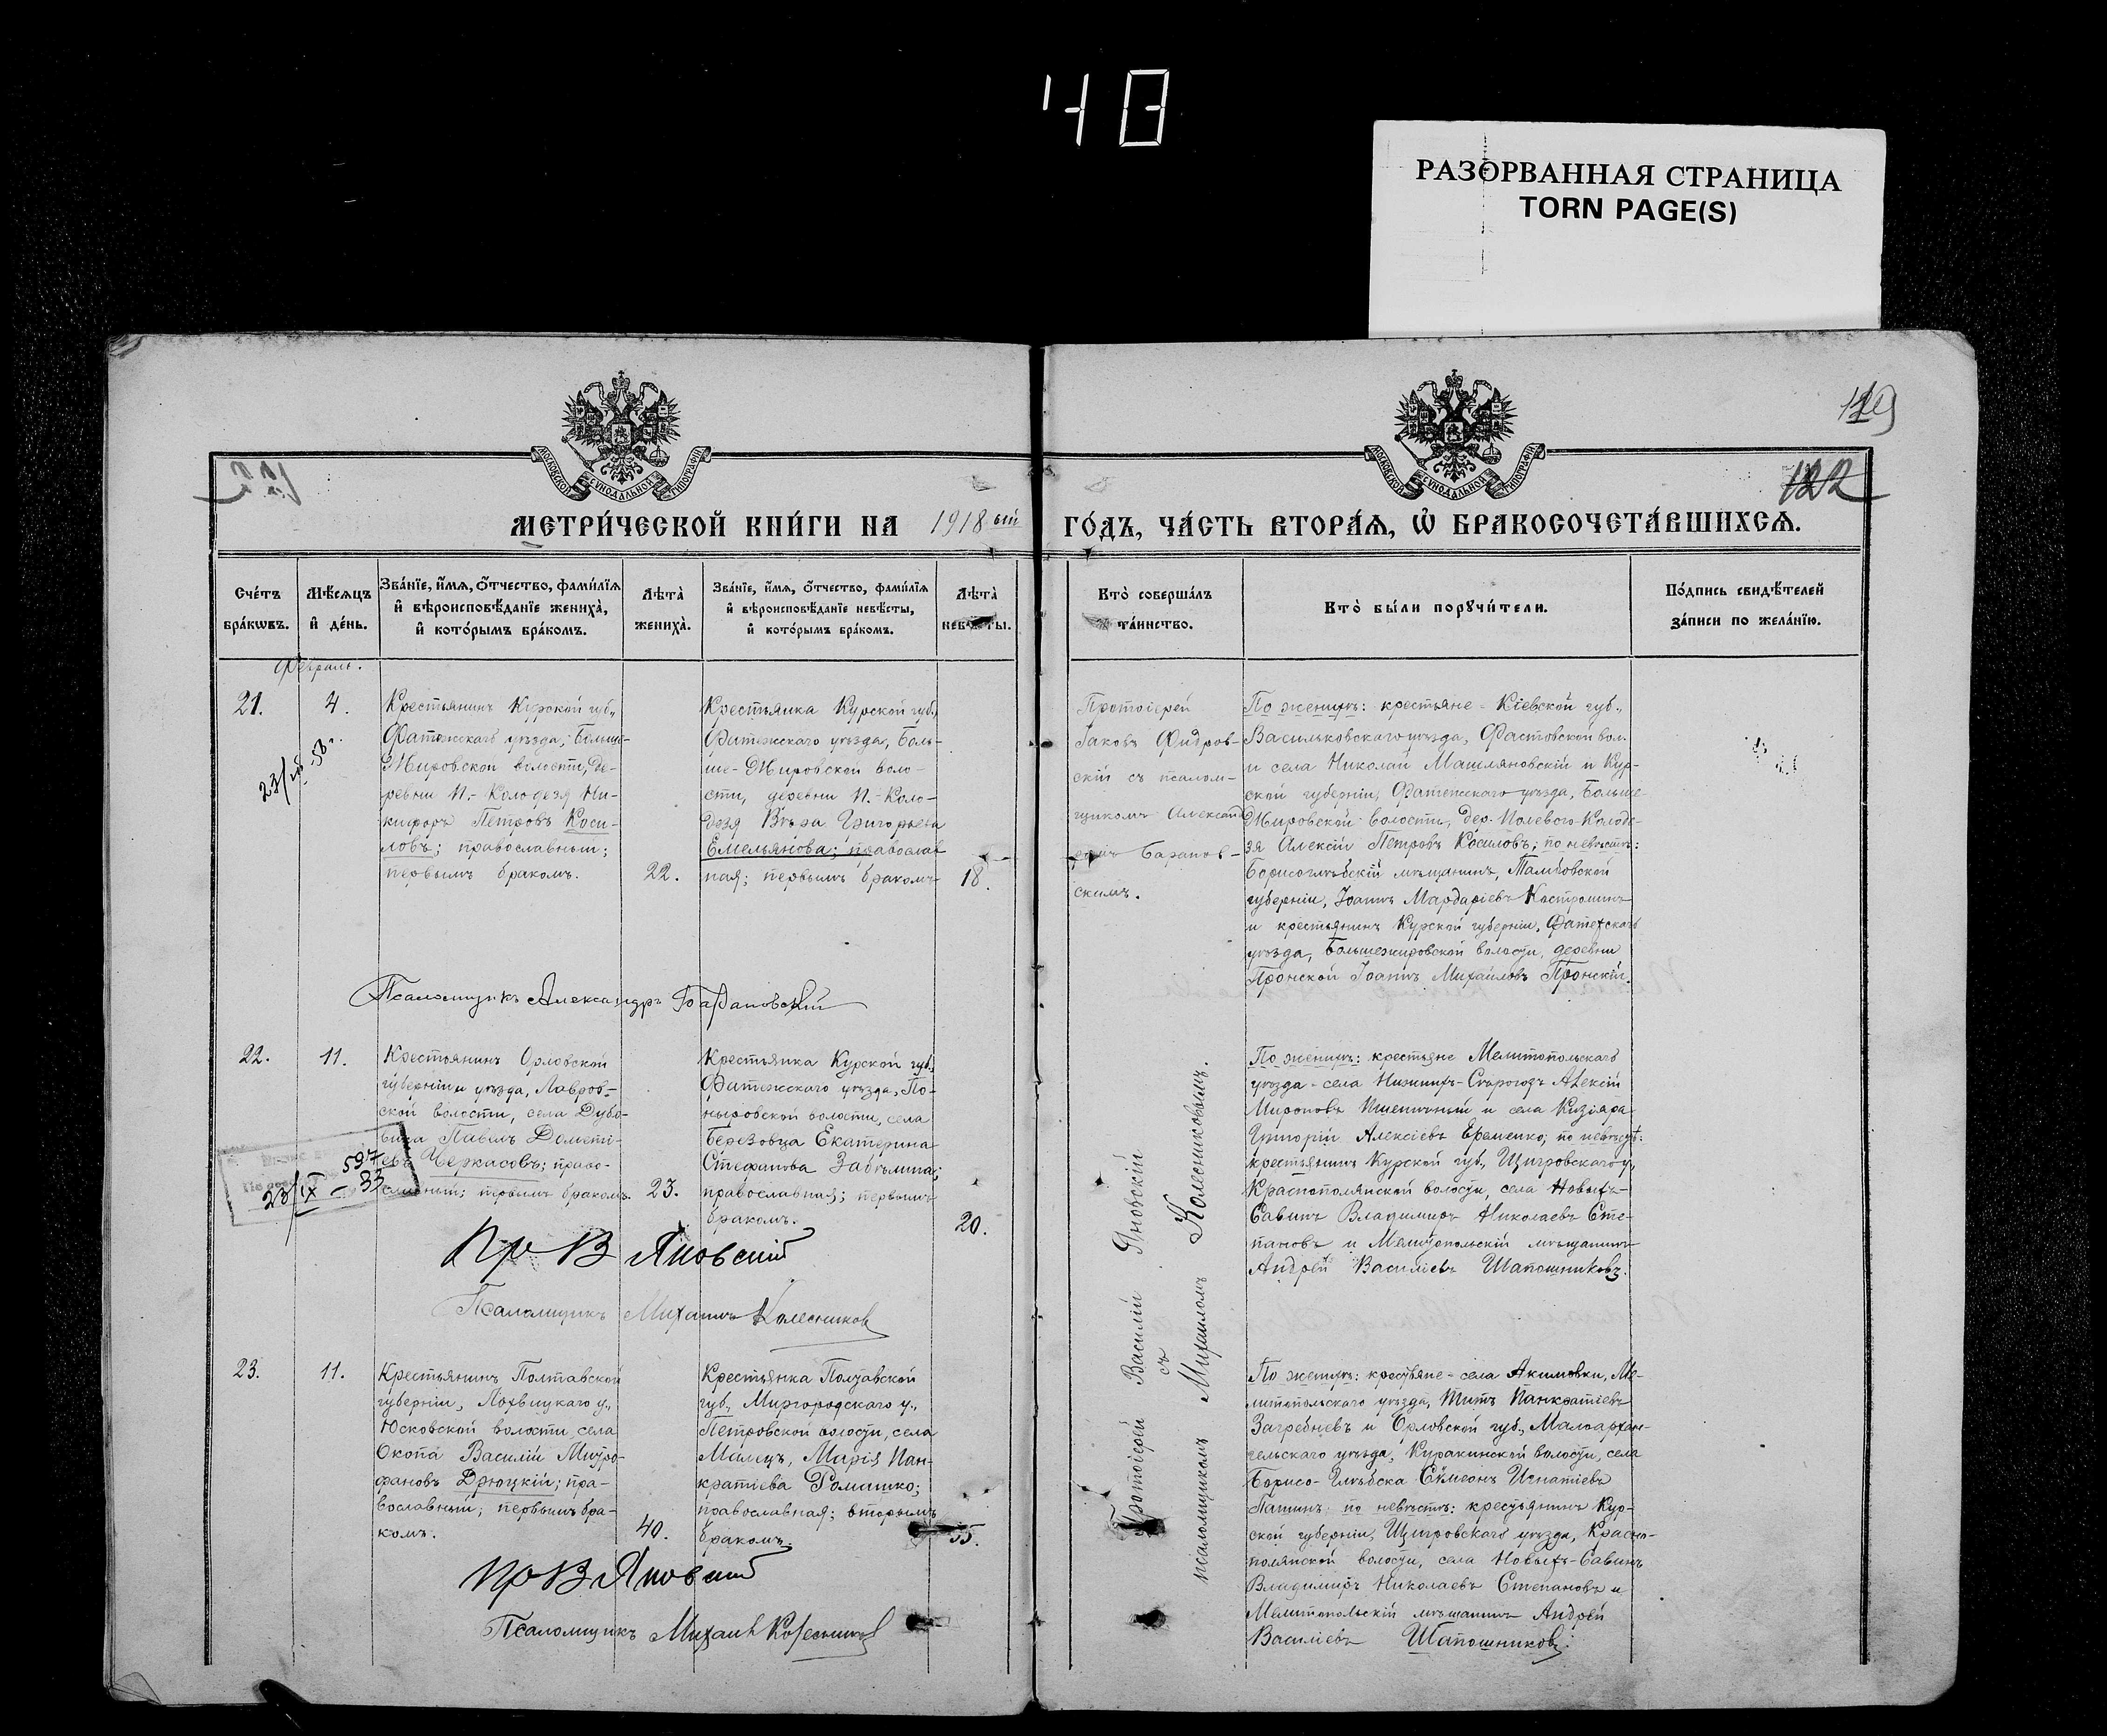 48
РАЗОРВАННАЯ СТРАНИЦА
TORN PAGE(S)
119
122
МОСКОВСКОЙ СѴНОДАЛЬНОЙ ТИПОГРАФІИ
МОСКОВСКОЙ СѴНОДАЛЬНОЙ ТИПОГРАФІИ
МЕТРИ́ЧЕСКОЙ КНИ́ГИ НА 1918 ый ГО́ДЪ, ЧА́СТЬ ВТОРА́Я, Ѡ БРАКОСОЧЕТА́ВШИХСЯ.
Сче́тъ
бра́кѡвъ.
Мѣ́сяцъ
и҆ де́нь.
Зва́нїе, и҆́мя, ѻ҆́тчество, фами́лїя
и҆ вѣроисповѣ́данїе жениха̀,
и҆ кото́рымъ бра́комъ.
Лѣта̀
жениха̀.
Зва́нїе, и҆́мя, ѻ҆́тчество, фами́лїя
и҆ вѣроисповѣ́данїе невѣ́сты,
и҆ кото́рымъ бра́комъ.
Лѣта̀
невѣ́сты.
Кто̀ соверша́лъ
та́инство.
Кто̀ бы́ли порꙋчи́тели.
По́дпись свидѣ́телей
за́писи по жела́нїю.
Февраль.
21.
4.
Крестьянинъ Курской губ.,
Фатежскаго уѣзда, Больше-
Жировской волости, де-
ревни П.-Колодезя Ни-
кифоръ Петровъ Коси-
ловъ; православный;
первымъ бракомъ.
22.
Крестьянка Курской губ.,
Фатежскаго уѣзда, Боль-
ше-Жировской воло-
сти, деревни П.-Коло-
дезя Вѣра Григорьева
Емельянова; православ
ная; первымъ бракомъ
18.
Протоіерей
Іаковъ Фидров-
скій съ псалом-
щикомъ Александ
Баранов-
скимъ.
По женихѣ: крестьяне - Кіевской губ.,
Васильковскаго уѣзда, Фастовской вол.
и села Николай Машляновскій и Кур-
ской губерніи, Фатежскаго уѣзда, Больше-
Жировской волости, дер. Полевого-Колоде-
зя Алексій Петровъ Косиловъ; по невѣстѣ:
Борисоглѣбскій мѣщанинъ, Тамбовской
губерніи, Іоаннъ Мардаріевъ Костроминъ
и крестьянинъ Курской губерніи, Фатежскаго
уѣзда, Большежировской волости, деревни
Пронской Іоаннъ Михаиловъ Пронскій.
Псаломщикъ Александръ Барановскій
22.
11.
Крестьянинъ Орловской
губерніи и уѣзда, Лавров-
ской волости, села Дубо-
вика Павелъ Дометі-
евъ Черкасовъ; право-
славный; первымъ бракомъ.
23.
597
23/IX – 33
Крестьянка Курской губ.,
Фатежскаго уѣзда, По-
ныровской волости, села
Березовца Екатерина
Стефанова Забѣлина;
православная; первымъ
бракомъ.
20.
Протоіерей Василій Яновскій
съ
псаломщикомъ Михаиломъ Колесниковымъ.
По женихѣ: крестьяне Мелитопольскаго
уѣзда - села Нижнихъ-Сѣрогозъ Алексій
Мироновъ Пшеничный и села Кизіяра
Григорій Алексіевъ Еременко; по невѣстѣ:
крестьянинъ Курской губ., Щигровскаго у.,
Краснополянской волости, села Новыхъ-
Савинъ Владимиръ Николаевъ Сте-
пановъ и Мелитопольскій мѣщанинъ
Андрей Василіевъ Шапошниковъ.
Пр В Яновскій
Псаломщикъ Михаилъ Колесниковъ
23.
11.
Крестьянинъ Полтавской
губерніи, Лохвицкаго у.,
Юсковской волости, села
Окопа Василій Митро-
фановъ Дрюцкій; пра-
вославный; первымъ бра-
комъ.
40.
Крестьянка Полтавской
губ., Миргородскаго у.,
Петровской волости, села
Малецъ, Марія Пан-
кратіева Ромашко;
православная; вторымъ
бракомъ.
35.
По женихѣ: крестьяне - села Акимовки, Ме-
литопольскаго уѣзда, Титъ Панкратіевъ
Загребневъ и Орловской губ., Малоархан-
гельскаго уѣзда, Куракинской волости, села
Борисо-Глѣбска Сѵмеонъ Игнатіевъ
Пашинъ; по невѣстѣ: крестьянинъ Кур-
ской губерніи, Щигровскаго уѣзда, Красно-
полянской волости, села Новыхъ-Савинъ
Владимиръ Николаевъ Степановъ и
Мелитопольскій мѣщанинъ Андрей
Василіевъ Шапошниковъ.
Пр В Яновскій
Псаломщикъ Михаилъ Колесниковъ